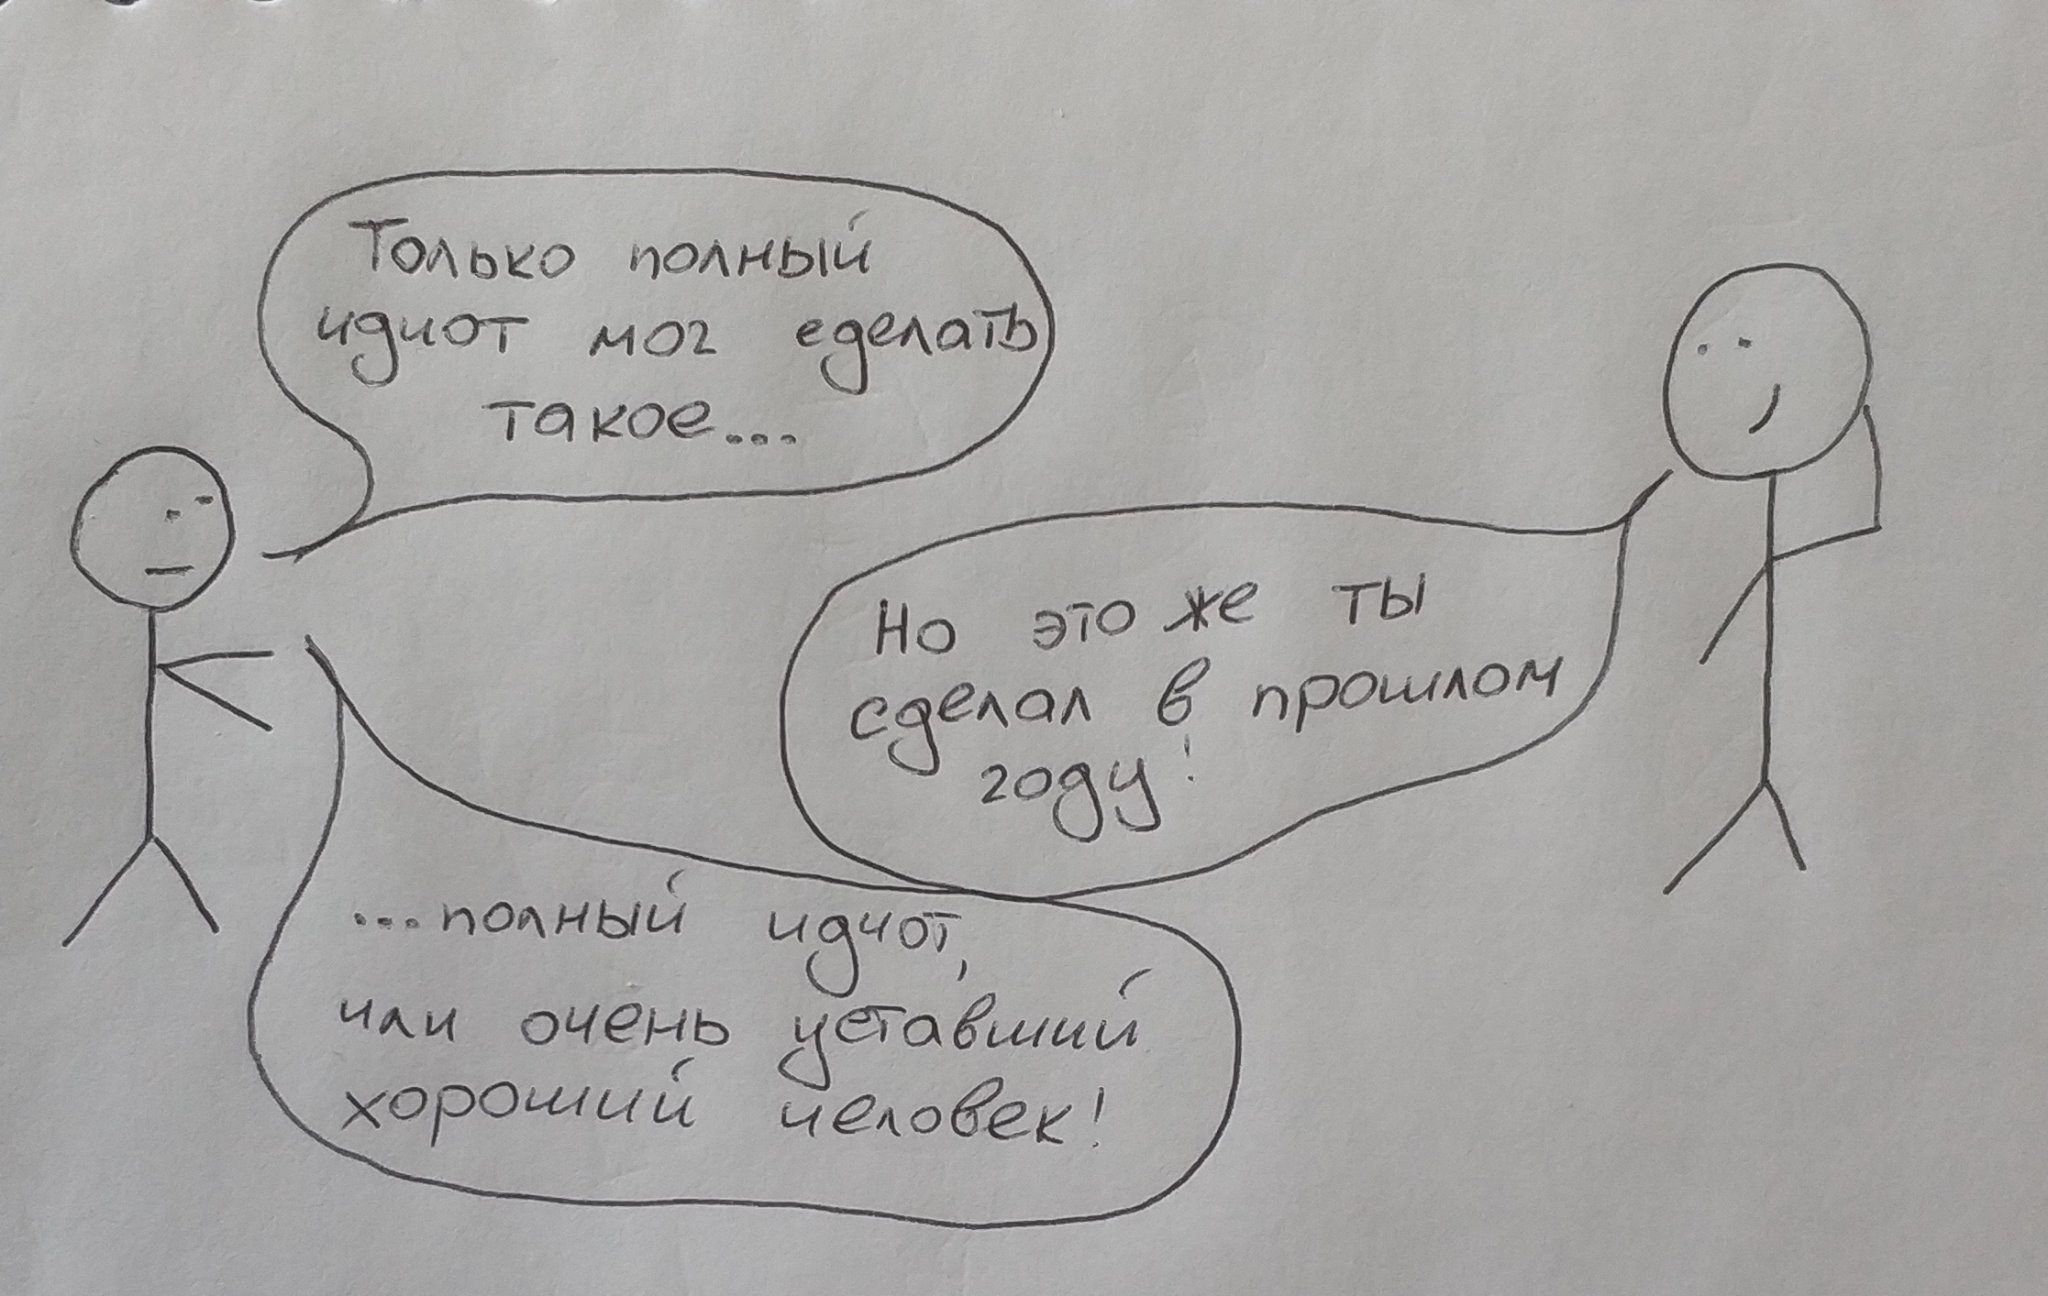 Только полный
идиот мог сделать
такое...
Но это же ты
сделал в прошлом
году!
...полный идиот,
или очень уставший
хороший человек!